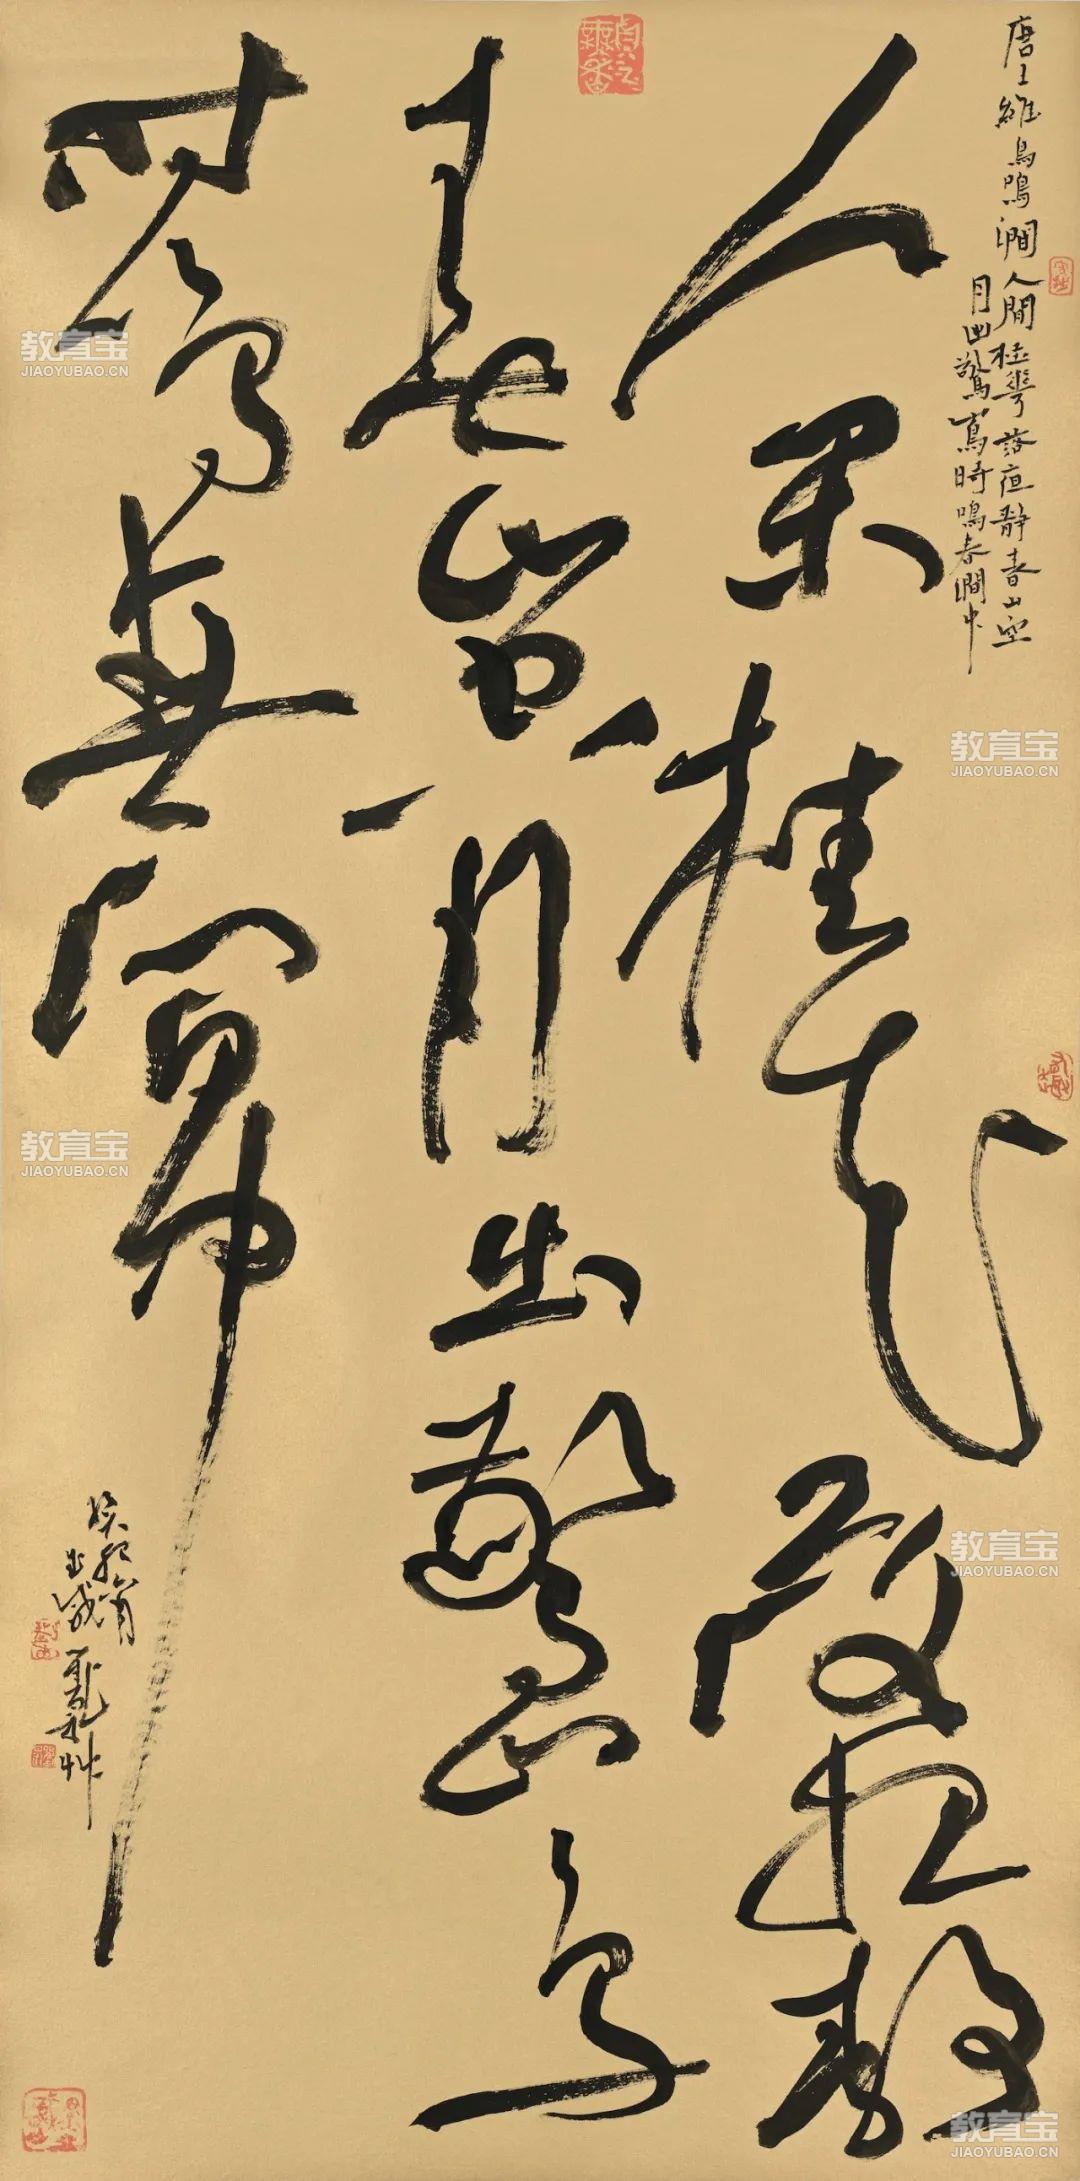 唐王維鳥鳴澗人間桂華落夜靜春山空
月出驚鳥時鳴春澗中
人閑桂花落夜靜
春山空月出驚山鳥
時鳴春澗中
癸卯
教育宝
JIAOYUBAO.CN
教育宝
JIAOYUBAO.CN
教育宝
JIAOYUBAO.CN
教育宝
JIAOYUBAO.CN
教育宝
JIAOYUBAO.CN